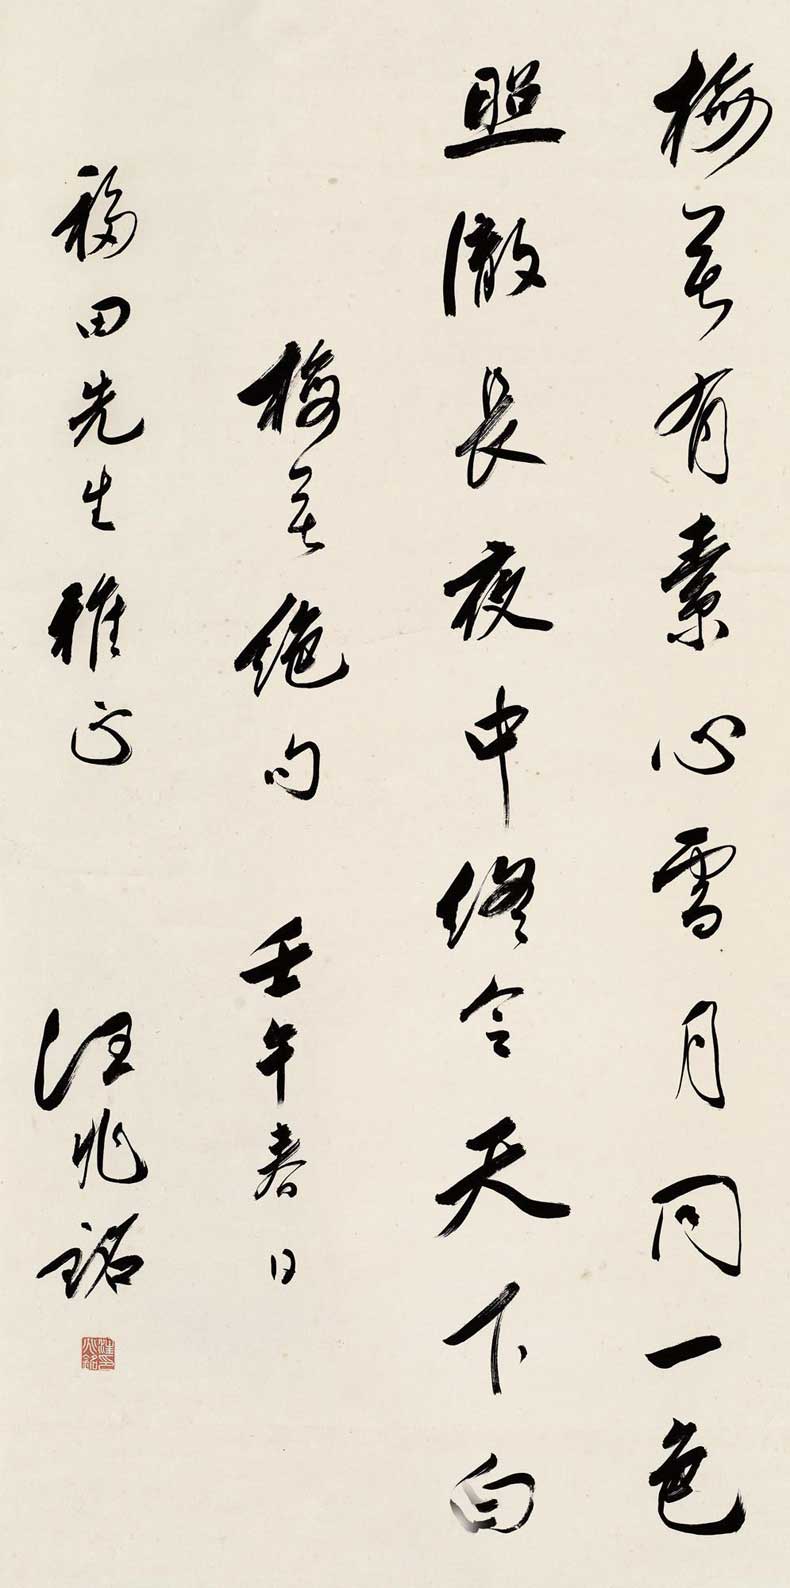 梅花有素心雪月同一色
照澈長夜中終令天下白
梅花絕句 壬午春日
福田先生雅正 汪兆銘
汪兆銘印